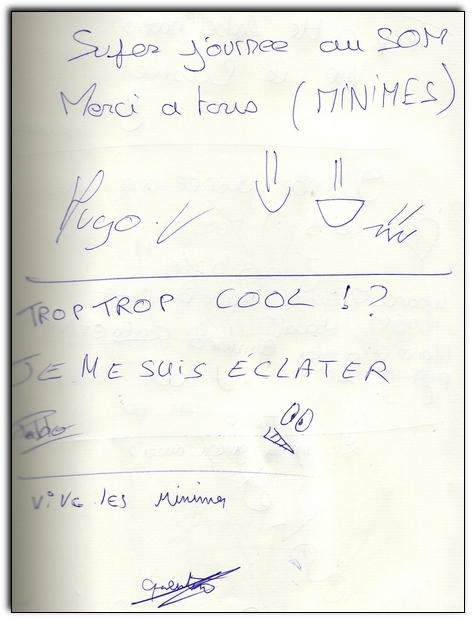 Super journee au SOM
Merci a tous (MINIMES)
Hugo.V
TROP TROP COOL !?
JE ME SUIS ÉCLATER
Pablo
ViVe les Minimes
Quentin